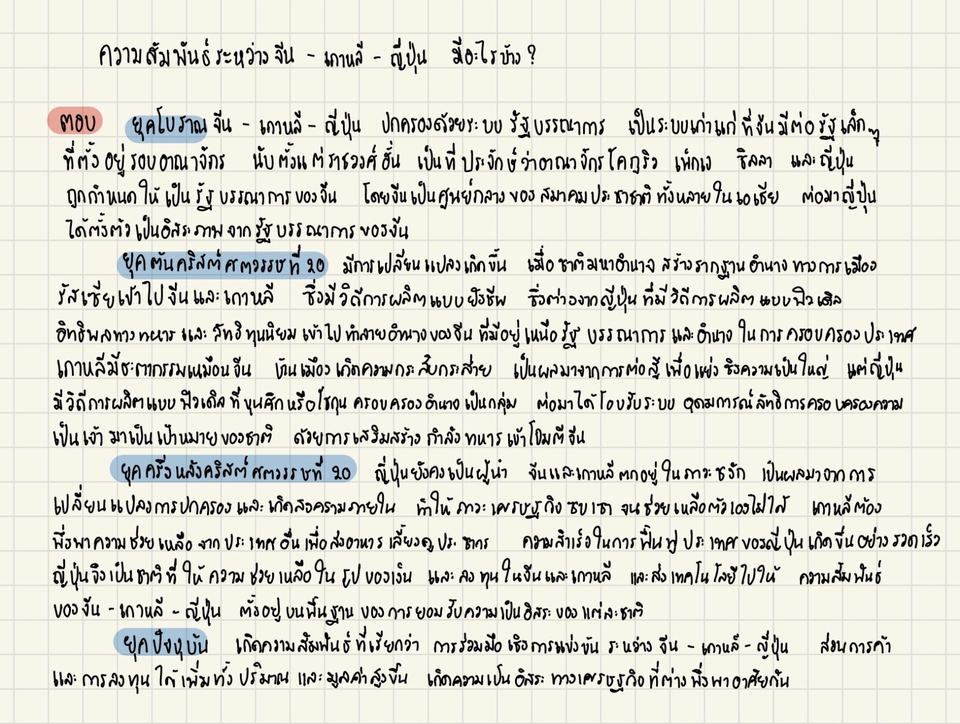 ความสัมพันธ์ระหว่างจีน - เกาหลี - ญี่ปุ่น มีอะไรบ้าง ?
ตอบ ยุคโบราณ จีน - เกาหลี - ญี่ปุ่น ปกครองด้วยระบบ รัฐบรรณาการ เป็นระบบเก่าแก่ ที่จีนมีต่อ รัฐเล็กๆ
ที่ตั้ง อยู่ รอบอาณาจักร นับตั้งแต่ราชวงศ์ฮั่น เป็นที่ ประจักษ์ว่าอาณาจักรโคกูรยิว แพ็กเจ ซิลลา และญี่ปุ่น
ถูกกำหนดให้ เป็น รัฐ บรรณาการ ของจีน โดยจีนเป็นศูนย์กลาง ของ สมาคม ประชาชาติ ทั้งหลายใน เอเชีย ต่อมาญี่ปุ่น
ได้ตั้งตัวเป็นอิสระภาพ จาก รัฐ บรรณาการ ของจีน
ยุคต้นคริสต์ศตวรรษที่ 20 มีการเปลี่ยนแปลงเกิดขึ้น เมื่อ ชาติมหาอำนาจ สร้างรากฐาน อำนาจ ทางการเมือง
รัสเซียเข้าไป จีนและเกาหลี ซึ่งมี วิถีการผลิตแบบ ยังชีพ ซึ่งต่างจากญี่ปุ่น ที่มี วิถีการผลิต แบบฟิวเดิล
อิทธิพลทางทหาร และ ลัทธิทุนนิยม เข้าไป ทำลายอำนาจของจีน ที่มีอยู่เหนือ รัฐ บรรณาการ และอำนาจ ในการ ครอบครอง ประเทศ
เกาหลีมีชะตากรรมเหมือนจีน บ้านเมือง เกิดความกระสับกระส่าย เป็นผลมาจากการต่อสู้ เพื่อแย่ง ชิงความเป็นใหญ่ แต่ญี่ปุ่น
มีวิถีการผลิตแบบ ฟิวเดิล ที่ขุนศึกหรือโชกุน ครอบครองอำนาจเป็นกลุ่ม ต่อมาได้โอบรับระบบ อุดมการณ์ลัทธิการครอบครองความ
เป็นเจ้า มาเป็นเป้าหมาย ของชาติ ด้วยการเสริมสร้าง กำลัง ทหาร เข้าโจมตีจีน
ยุคครึ่งหลังคริสต์ศตวรรษที่ 20 ญี่ปุ่นยังคงเป็นผู้นำ จีนและเกาหลีตกอยู่ในภาวะชะงัก เป็นผลมาจาก การ
เปลี่ยนแปลงการปกครอง และเกิดสงครามภายใน ทำให้ ภาวะ เศรษฐกิจ ซบเซา จนช่วยเหลือตัวเองไม่ได้ เกาหลีต้อง
พึ่งพาความช่วยเหลือ จาก ประเทศ อื่น เพื่อส่งอาหาร เลี้ยงดู ประชากร ความสำเร็จในการฟื้นฟู ประเทศ ของญี่ปุ่น เกิดขึ้นอย่าง รวดเร็ว
ญี่ปุ่นจึงเป็นชาติที่ ให้ ความช่วยเหลือใน รูป ของเงิน และ ลงทุน ในจีนและเกาหลี และส่งเทคโนโลยีไปให้ ความสัมพันธ์
ของจีน - เกาหลี - ญี่ปุ่น ตั้งอยู่ บนพื้นฐาน ของการยอมรับความเป็นอิสระ ของ แต่ละชาติ
ยุคปัจจุบัน เกิดความสัมพันธ์ ที่เรียกว่า การร่วมมือ เชิงการแข่งขัน ระหว่าง จีน - เกาหลี - ญี่ปุ่น ส่วนการค้า
และ การลงทุน ได้เพิ่มทั้ง ปริมาณ และมูลค่าสูงขึ้น เกิดความเป็น อิสระ ทางเศรษฐกิจที่ต่าง พึ่งพาอาศัยกัน